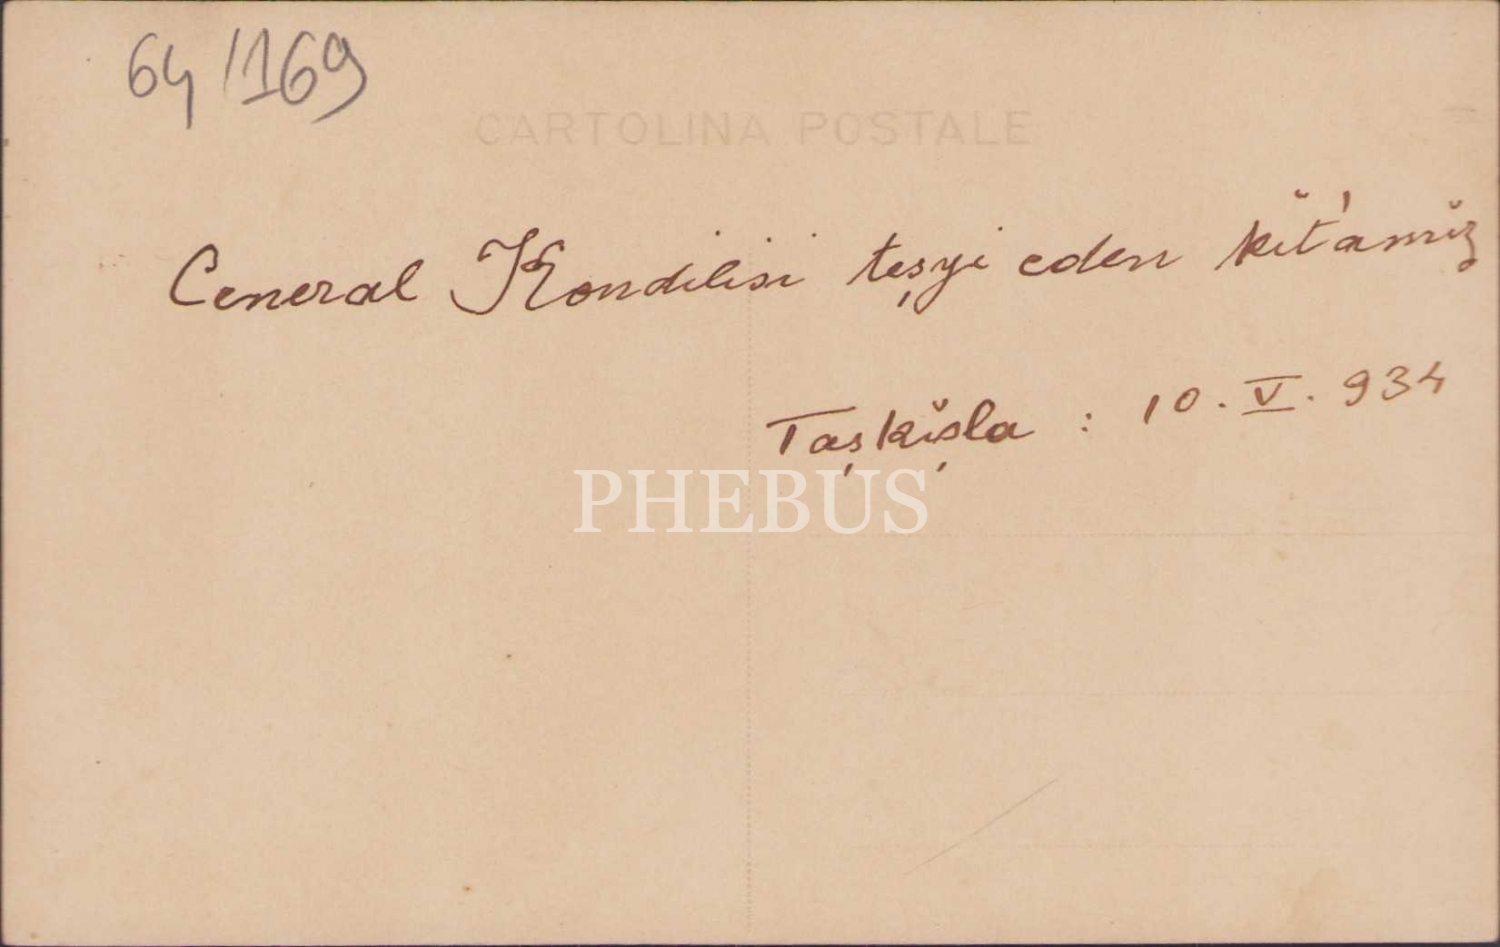 64/169
CARTOLINA POSTALE
Ceneral Kondilisi teşyi eden kĭt'amĭz
Taşkĭşla : 10. V. 934
PHEBUS